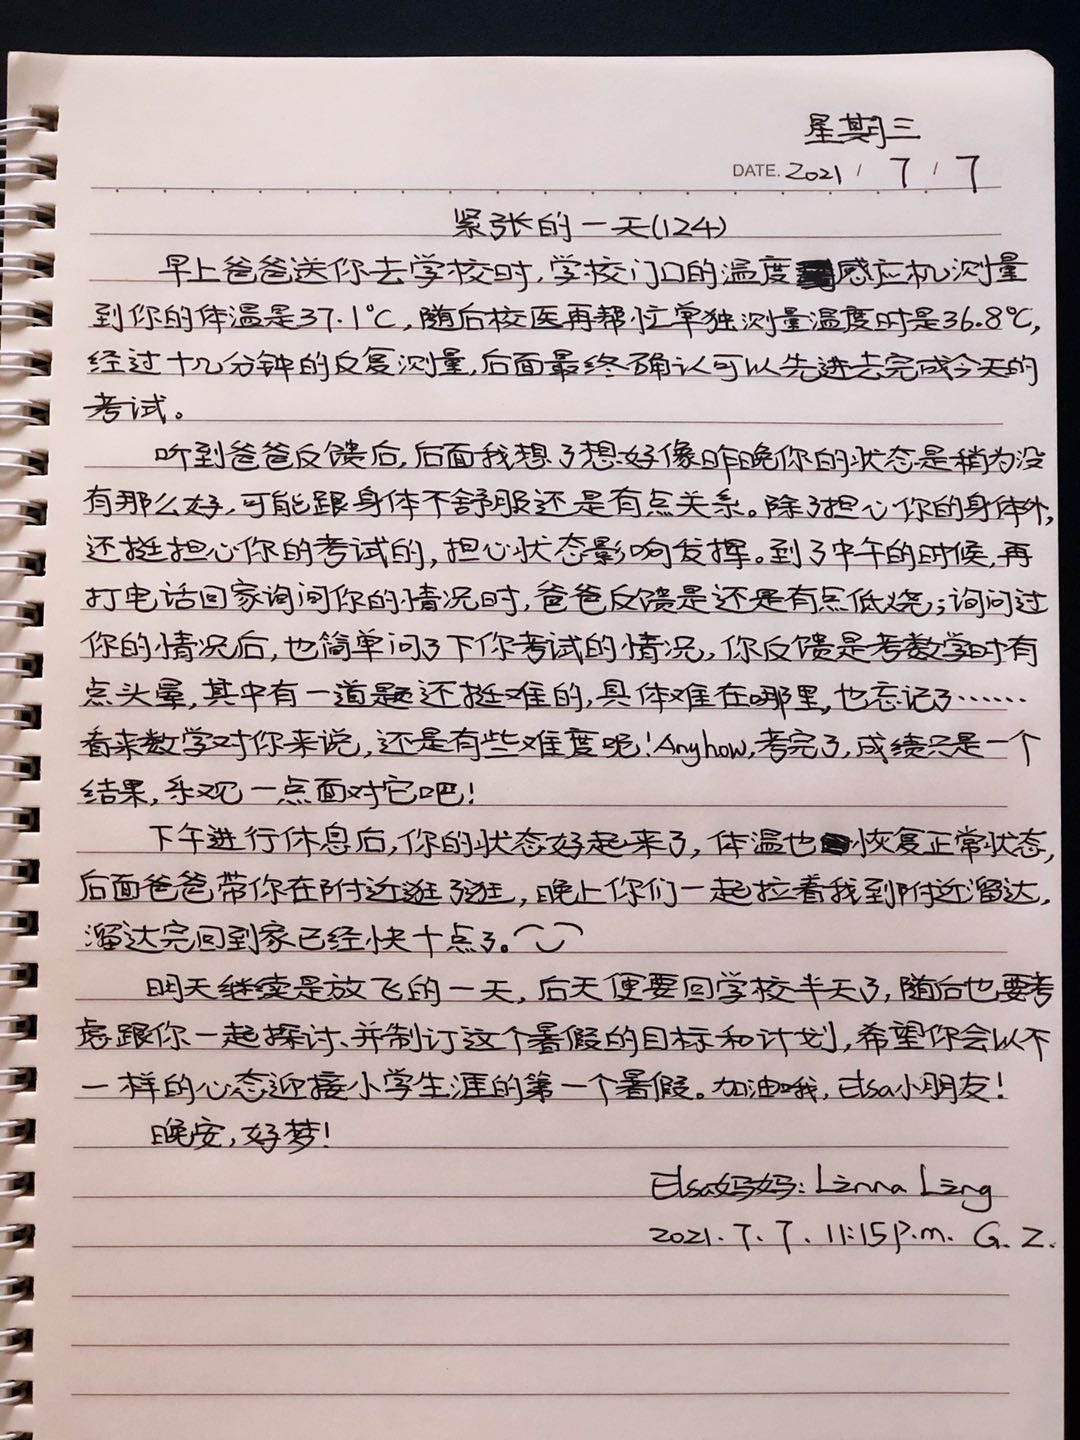 星期三
DATE. 2021 / 7 / 7
紧张的一天(124)
早上爸爸送你去学校时,学校门口的温度感应机测量
到你的体温是37.1℃,随后校医再帮忙单独测量温度时是36.8℃,
经过十几分钟的反复测量,后面最终确认可以先进去完成今天的
考试。
听到爸爸反馈后,后面我想了想好像昨晚你的状态是稍为没
有那么好,可能跟身体不舒服还是有点关系。除了担心你的身体外,
还挺担心你的考试的,担心状态影响发挥。到了中午的时候,再
打电话回家询问你的情况时,爸爸反馈是还是有点低烧;询问过
你的情况后,也简单问了下你考试的情况,你反馈是考数学时有
点头晕,其中有一道题还挺难的,具体难在哪里,也忘记了……
看来数学对你来说,还是有些难度呢!Anyhow,考完了,成绩只是一个
结果,乐观一点面对它吧!
下午进行休息后,你的状态好起来了,体温也恢复正常状态,
后面爸爸带你在附近逛了逛,晚上你们一起拉着我到附近溜达,
溜达完回到家已经快十点了。
明天继续是放飞的一天,后天便要回学校半天了,随后也要考
虑跟你一起探讨、并制订这个暑假的目标和计划,希望你会以不
一样的心态迎接小学生涯的第一个暑假。加油哦,Elsa小朋友!
晚安,好梦!
Elsa妈妈:Linna Ling
2021.7.7. 11:15p.m. G.Z.